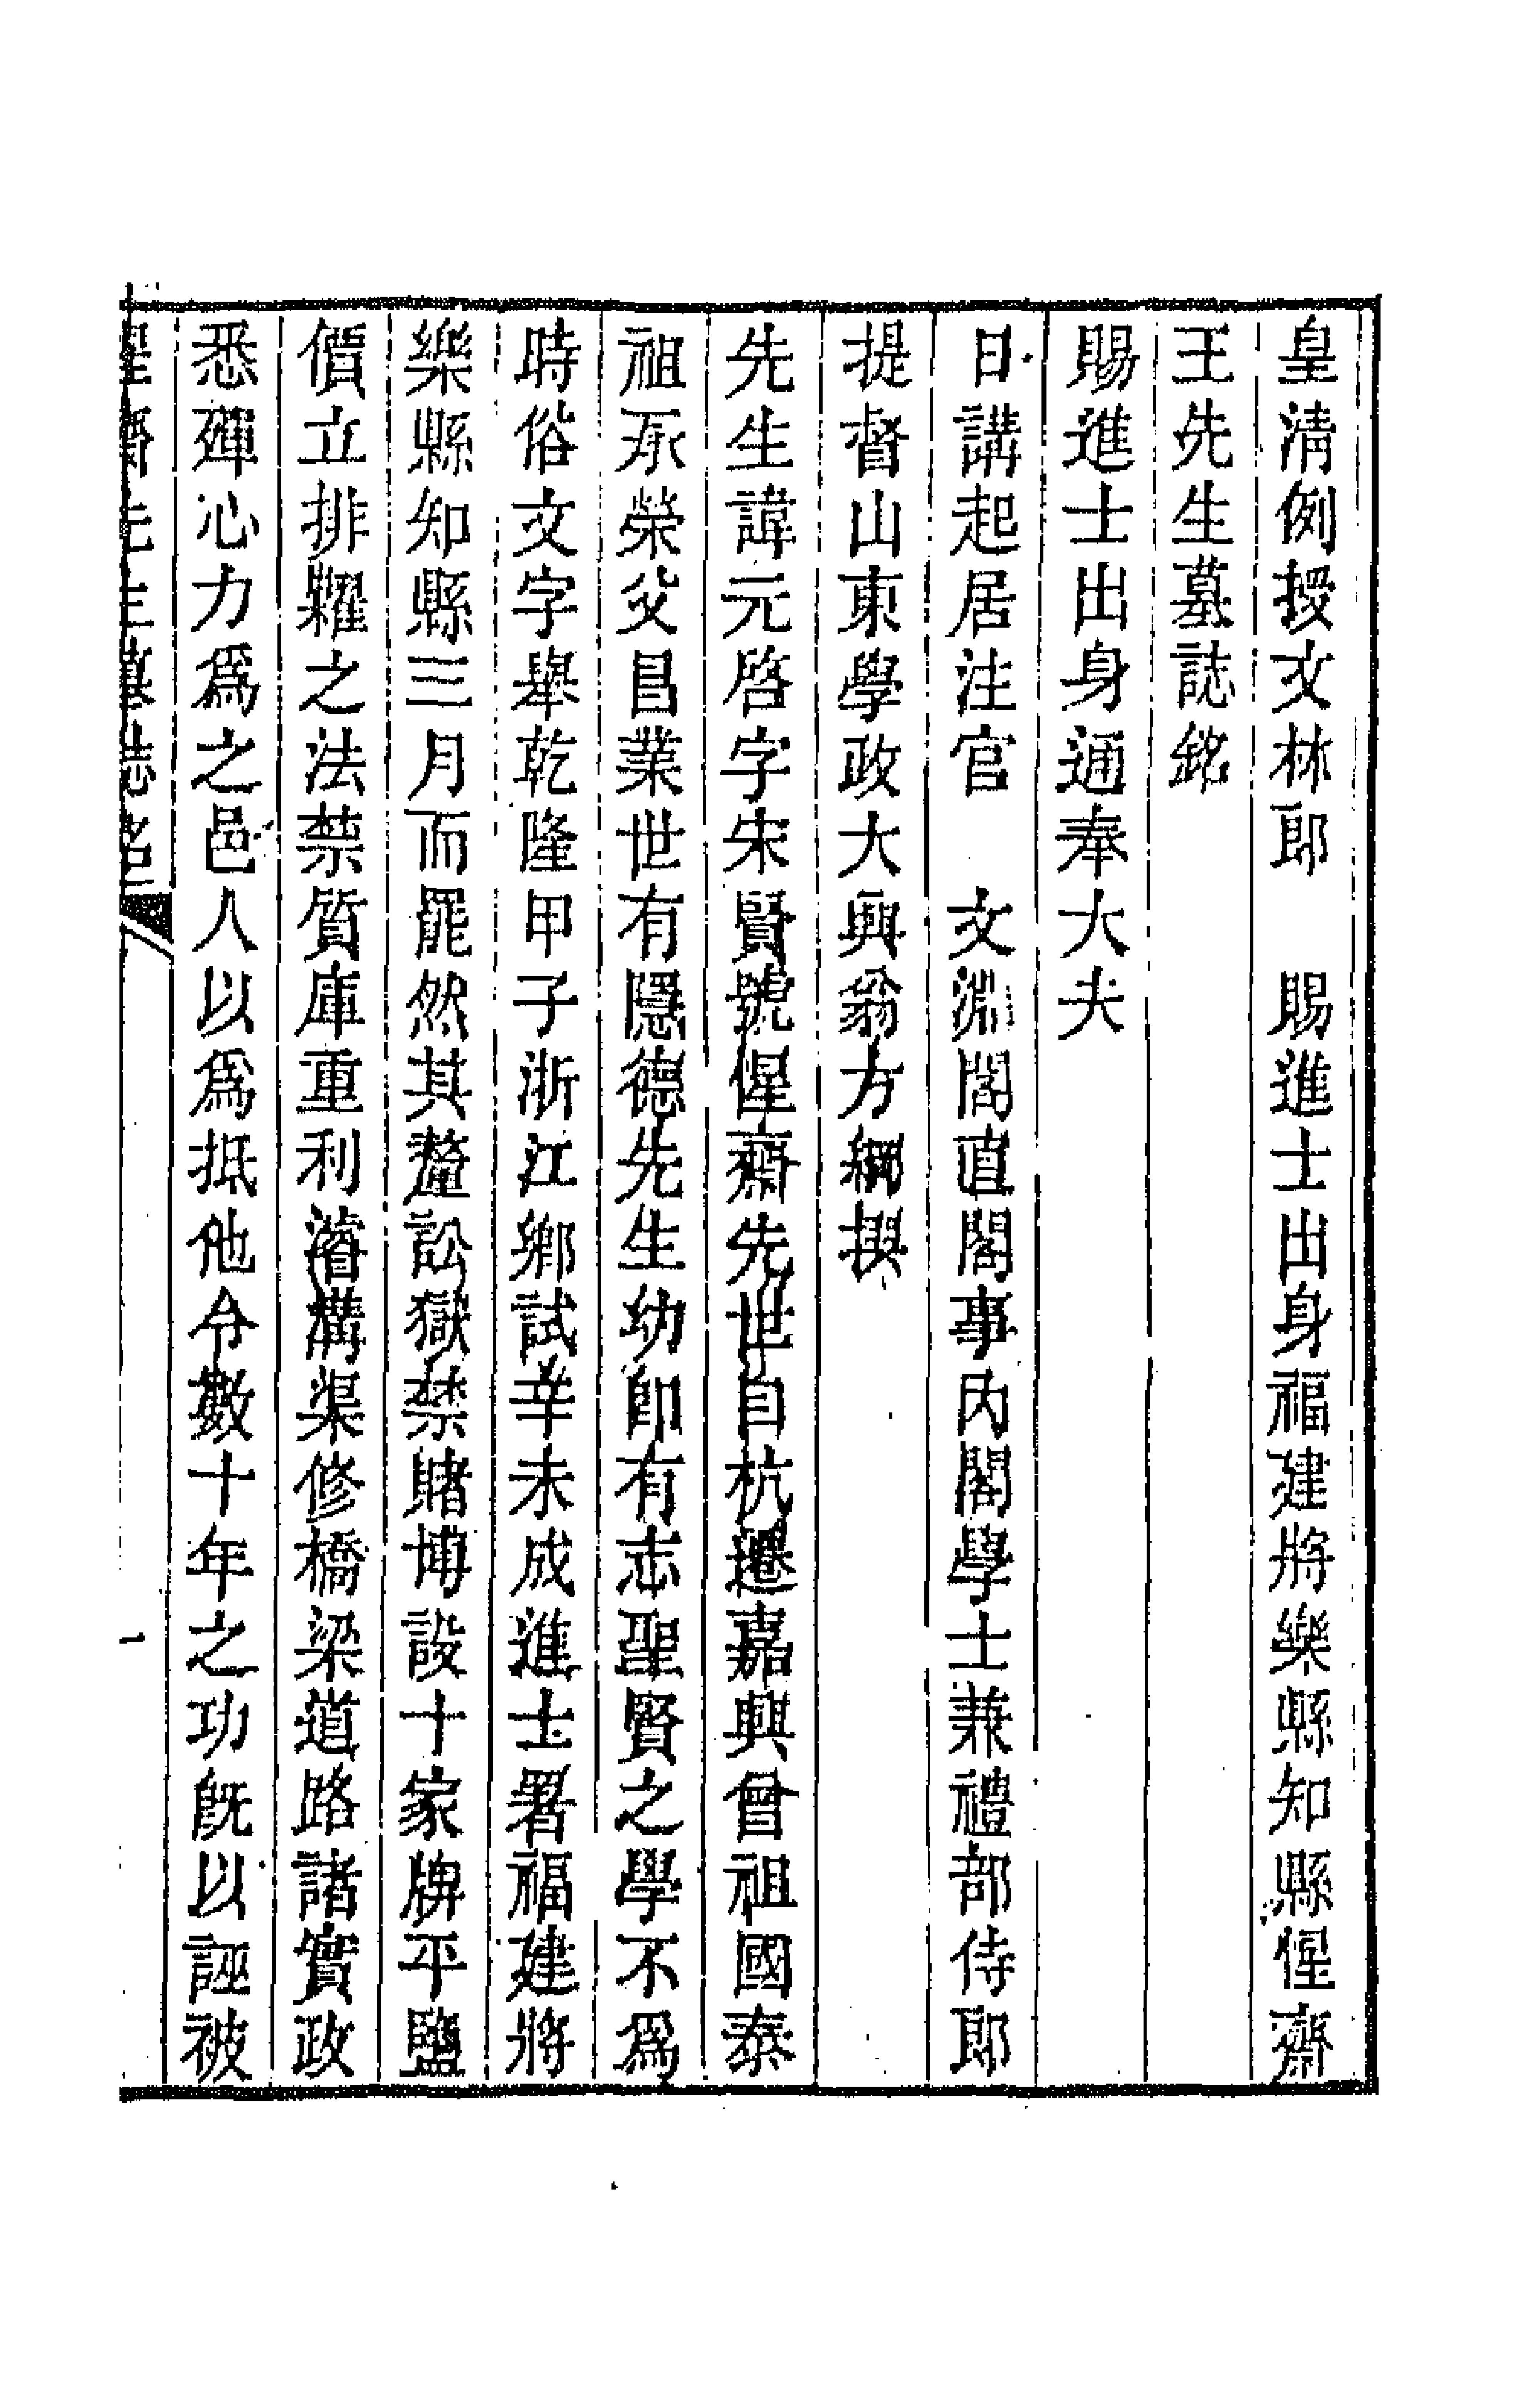 皇清例授文林郎　賜進士出身福建將樂縣知縣惺齋
王先生墓誌銘
賜進士出身通奉大夫
日講起居注官　文淵閣直閣事內閣學士兼禮部侍郎
提督山東學政大興翁方綱撰
先生諱元啓字宋賢號惺齋先世自杭遷嘉興曾祖國泰
祖承榮父昌業世有隱德先生幼卽有志聖賢之學不爲
時俗文字舉乾隆甲子浙江鄉試辛未成進士署福建將
樂縣知縣三月而罷然其釐訟獄禁賭博設十家牌平鹽
價立排糶之法禁質庫重利濬溝渠修橋梁道路諸實政
悉殫心力爲之邑人以爲抵他令數十年之功旣以誣被
惺齋先生墓誌銘
一